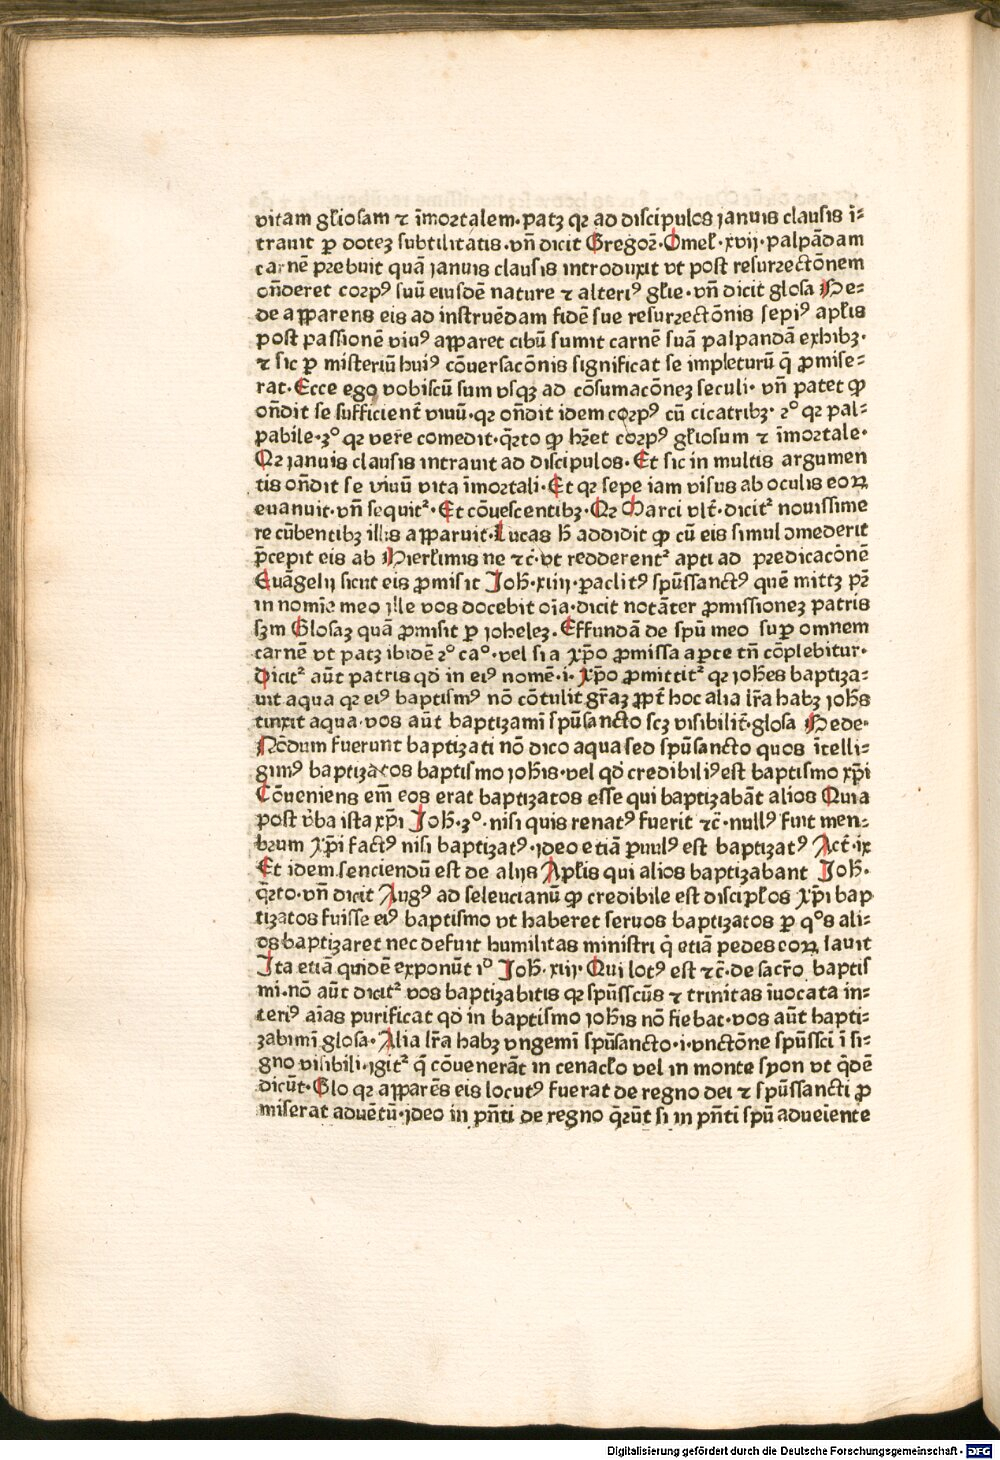 vitam gl̄iosam ⁊ īmoꝛtalem·patꝫ qꝛ ad discipulos ianuis clausis ī⸗
trauit ꝑ doteꝫ subtilitatis·vn̄ dicit Gregoꝛ̄·Omel̄·xvij·palpādam
carnē pꝛebuit quā ianuis clausis introduxit vt post resurꝛectōnem
on̄deret coꝛpꝰ suū eiusdē nature ⁊ alteriꝰ gl̄ie·vn̄ dicit glosa He⸗
de apparens eis ad instruēdam fidē sue resurꝛectōnis sepiꝰ apl̄is
post passionē viuꝰ apparet cibū sumit carnē suā palpandā exhibꝫ·
⁊ sic ꝑ misteriū huiꝰ cōuersacōnis significat se impleturū q̄ ꝓmise⸗
rat·Ecce ego vobiscū sum vsqꝫ ad cōsumacōneꝫ seculi· vn̄ patet ꝙ
on̄dit se sufficient̄ viuū·qꝛ on̄dit idem coꝛpꝰ cū cicatribꝫ·2° qꝛ pal⸗
pabile·3° qꝛ vere comedit·q̄rto ꝙ hꝛ̄et coꝛpꝰ gl̄iosum ⁊ īmoꝛtale·
Qꝛ ianuis clausis intrauit ad discipulos·Et sic in multis argumen
tis on̄dit se viuū vita īmoꝛtali·Et qꝛ sepe iam visus ab oculis eoꝝ
euanuit·vn̄ sequit᷑·Et cōuescentibꝫ·Qꝛ Marci vlt̄·dicit᷑ nouissime
re cūbentibꝫ illis apparuit·Lucas h̄ addidit ꝙ cū eis simul ꝯmederit
p̄cepit eis ab Hierl̄imis ne ⁊c̄·vt redderent᷑ apti ad pꝛedicacōnē
Euāgelij sicut eis ꝓmisit Joh̄·xiiij·paclitꝰ spūssanctꝰ quē mittꝫ pꝛ̄
in nomīe meo ille vos docebit oīa·dicit notāter ꝓmissioneꝫ patris
sꝫm Glosaꝫ quā ꝓmisit ꝑ ioheleꝫ·Effundā de spū meo suꝑ omnem
carnē vt patꝫ ibidē 2° ca°·vel si a xp̄o ꝓmissa a ꝑte tn̄ cōplebitur·
Dicit᷑ aūt patris qd̄ in eiꝰ nomē·i·xp̄o ꝓmittit᷑ qꝛ ioh̄es baptiza⸗
uit aqua qꝛ eiꝰ baptismꝰ nō cōtulit gr̄aꝫ ꝓpt̄ hoc alia lr̄a habꝫ ioh̄s
tinxit aqua·vos aūt baptizamī spūsancto scꝫ visibilit̄·glosa Hede·
Nōdum fuerunt baptizati nō dico aqua sed spūsancto quos ītelli⸗
gimꝰ baptizatos baptismo ioh̄is·vel qd̄ credibiliꝰ est baptismo xp̄i
Cōueniens em̄ eos erat baptizatos esse qui baptizabāt alios Quia
post v̄ba ista xp̄i Joh̄·3°·nisi quis renatꝰ fuerit ⁊c̄·nullꝰ fuit men⸗
bꝛum xp̄i factꝰ nisi baptizatꝰ·ideo etiā ꝑuulꝰ est baptizatꝰ Act̄·ix
Et idem senciendū est de alijs Apl̄is qui alios baptizabant Joh̄·
q̄rto·vn̄ dicit Augꝰ ad seleucianū ꝙ credibile est discipl̄os xp̄i bap
tizatos fuisse eiꝰ baptismo vt haberet seruos baptizatos ꝑ q°s ali⸗
os baptizaret nec defuit humilitas ministri q̄ etiā pedes eoꝝ lauit
Ita etiā quidē exponūt i° Joh̄·xiij·Qui lotꝰ est ⁊c̄·de sacr̄o baptis
mi·nō aūt dicit᷑ vos baptizabitis qꝛ spūsscūs ⁊ trinitas īuocata in⸗
teriꝰ aīas purificat qd̄ in baptismo ioh̄is nō fiebat·vos aūt bapti⸗
zabimī glosa·Alia lr̄a habꝫ vngemī spūsancto·i·vnctōne spūsscī ī si⸗
gno visibili·igit᷑ q̄ cōuenerāt in cenacl̄o vel in monte syon vt q̄dē
dicūt·Glo qꝛ apparēs eis locutꝰ fuerat de regno dei ⁊ spūssancti ꝓ
miserat aduētū·ideo in pn̄ti de regno q̄rūt si in pn̄ti spū adueiente
Digitalisierung gefördert durch die Deutsche Forschungsgemeinschaft - DFG